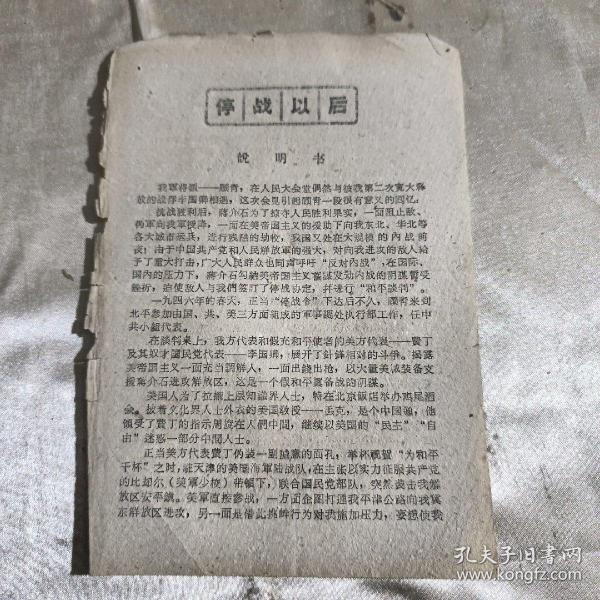 停战以后
说明书
我军将领——顾青，在人民大会堂偶然与被我第二次宽大释
放的战俘李国卿相遇，这次会见引起顾青一段很有意义的回忆。
抗战胜利后，蒋介石为了掠夺人民胜利果实，一面阻止敌、
伪军向我军投降，一面在美帝国主义的援助下向我东北、华北等
各大城市运兵，进行残酷的劫收，我国又处在大规模的内战前
夜；由于中国共产党和人民解放军的强大，对向我进攻的敌人给
予了重大打击，广大人民群众也同声呼吁“反对内战”，在国际、
国内的压力下，蒋介石勾结美帝国主义蓄谋发动内战的阴谋暂受
挫折，迫使敌人与我们签订了停战协定，并进行“和平谈判”。
一九四六年的春天，正当“停战令”下达后不久，顾青来到
北平参加由国、共、美三方面组成的军事调处执行部工作，任中
共小组代表。
在谈判桌上，我方代表和假充和平使者的美方代表——费丁
及其奴才国民党代表——李国卿，展开了针锋相对的斗争。揭露
美帝国主义一面充当调解人，一面出钱出枪，以大量美械装备支
援蒋介石进攻解放区，这是一个假和平真备战的阴谋。
美国人为了拉拢上层知识界人士，特在北京饭店举办鸡尾酒
会。披着文化界人士外衣的美国教授——玉克，是个中国通，他
领受了费丁的指示周旋在人们中间，继续以美国的“民主”“自
由”迷惑一部分中间人士。
正当美方代表费丁伪装一副诚意的面孔，举杯祝贺“为和平
干杯”之时，驻天津的美国海军陆战队，在主张以实力征服共产党
的比却尔（美军少校）带领下，联合国民党部队，突然袭击我解
放区安平镇。美军直接参战，一方面企图打通我平津公路向我冀
东解放区进攻，另一面是借此挑衅行为对我施加压力，妄想使我
孔夫子旧书网
www.kongfz.com